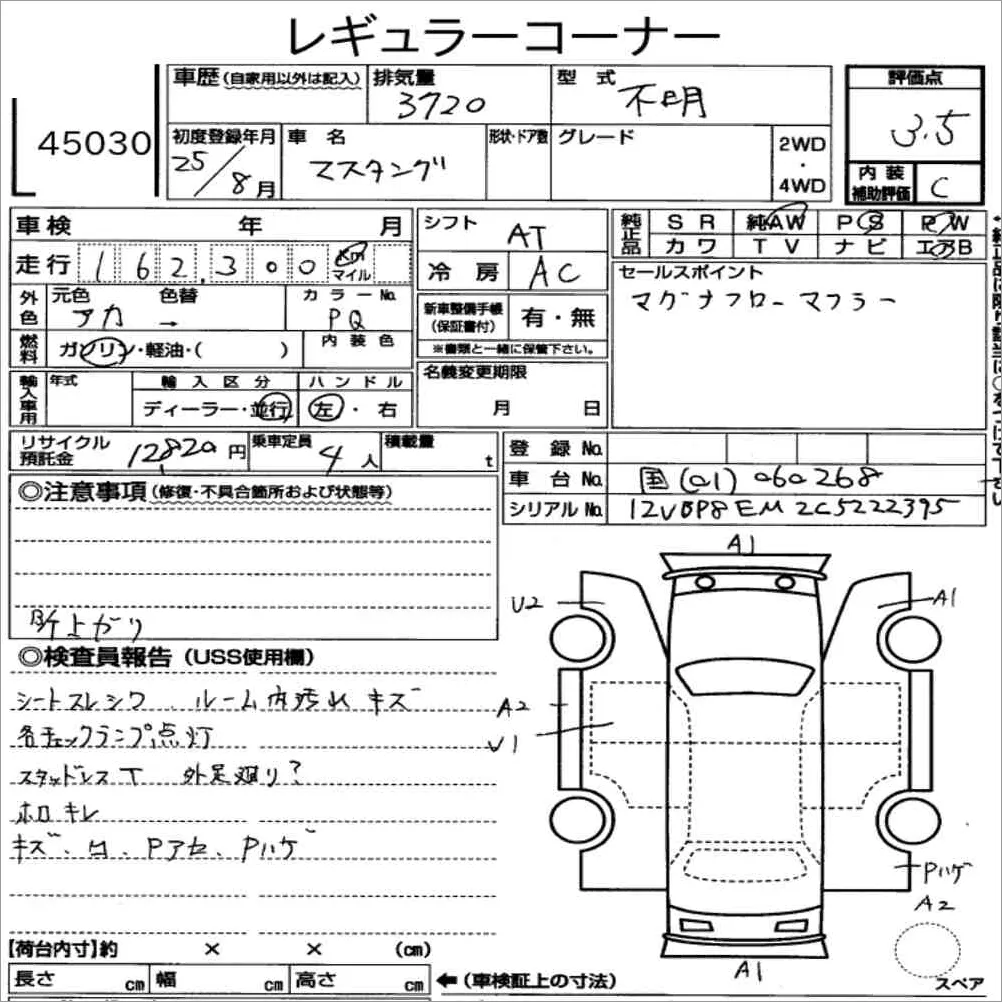 レギュラーコーナー
45030
車歴(自家用以外は記入)
排気量
3720
型式
不明
評価点
3.5
初度登録年月
25/8月
車名
マスタング
形状・ドア数
グレード
2WD
・
4WD
内装
補助評価
C
車検 年 月
走行 162,300 Km マイル
外色
元色
アカ
色替
→
カラーNo.
PQ
燃料
ガソリン・軽油・( )
内装色
輸入車用
年式
輸入区分
ディーラー・並行
ハンドル
左・右
シフト
AT
冷房
AC
新車整備手帳
(保証書付)
有・無
※書類と一緒に保管下さい。
名義変更期限
月 日
純正品
SR 純AW PS PW
カワ TV ナビ エアB
セールスポイント
マグナフローマフラー
リサイクル
預託金
12820円
乗車定員
4人
積載量
t
登録No.
車台No.
国(01)060268
シリアルNo.
1ZVBP8EM2C5222395
◎注意事項(修復・不具合箇所および状態等)
◎検査員報告(USS使用欄)
シートスレシワ、ルーム内汚れ キズ
各チェックランプ点灯
スタッドレスT 外足廻り?
ホロキレ
キズ、凹、Pアセ、Pハゲ
A1
U2
A1
A2
U1
Pハゲ
A2
A1
スペア
【荷台内寸】約 × × (cm)
長さ cm 幅 cm 高さ cm
←(車検証上の寸法)